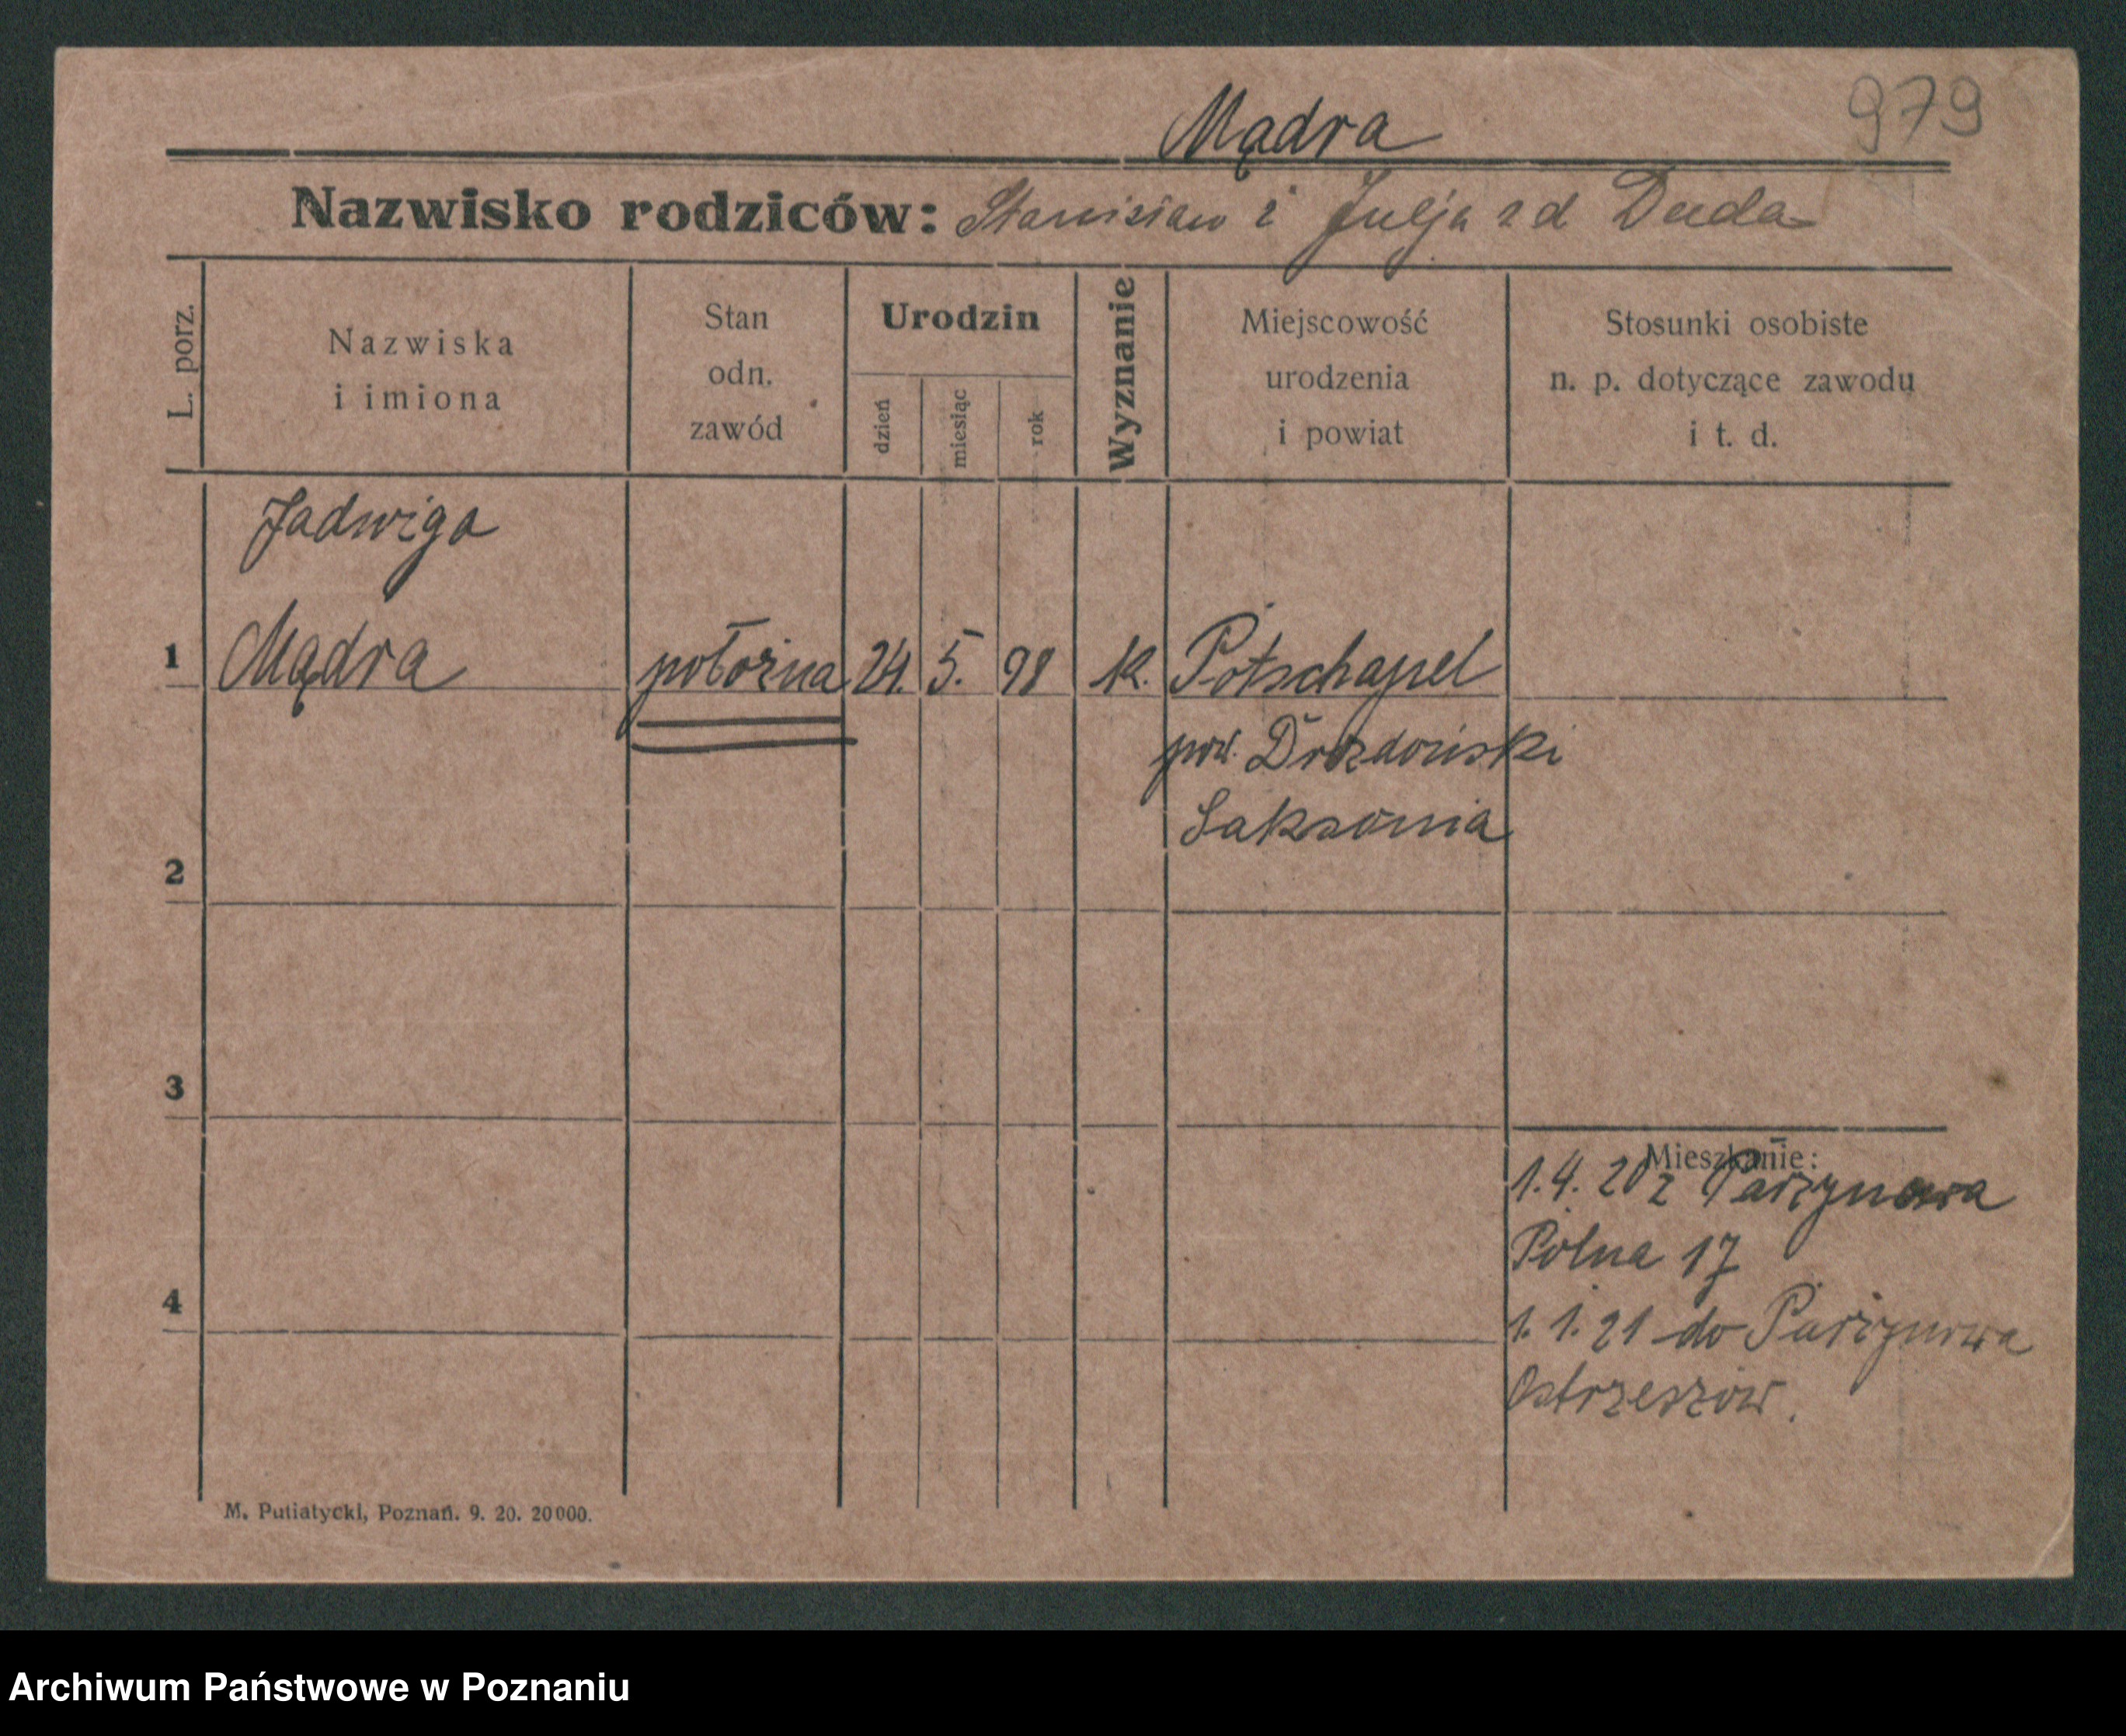 Mądra
979
Nazwisko rodziców: Stanisław i Julja zd Duda
L. porz.
Nazwiska
i imiona
Stan
odn.
zawód
Urodzin
dzień
miesiąc
rok
Wyznanie
Miejscowość
urodzenia
i powiat
Stosunki osobiste
n. p. dotyczące zawodu
i t. d.
Jadwiga
1 Mądra położna 24. 5. 98 K. Potschapel
pow. Drozdoński
Saksonia
2
3
Mieszkanie:
1.4.20 z Parzynowa
Polna 17
4
1.1.21 do Parzynowa
Ostrzeszów.
M. Putiatycki, Poznań. 9. 20. 20000.
Archiwum Państwowe w Poznaniu